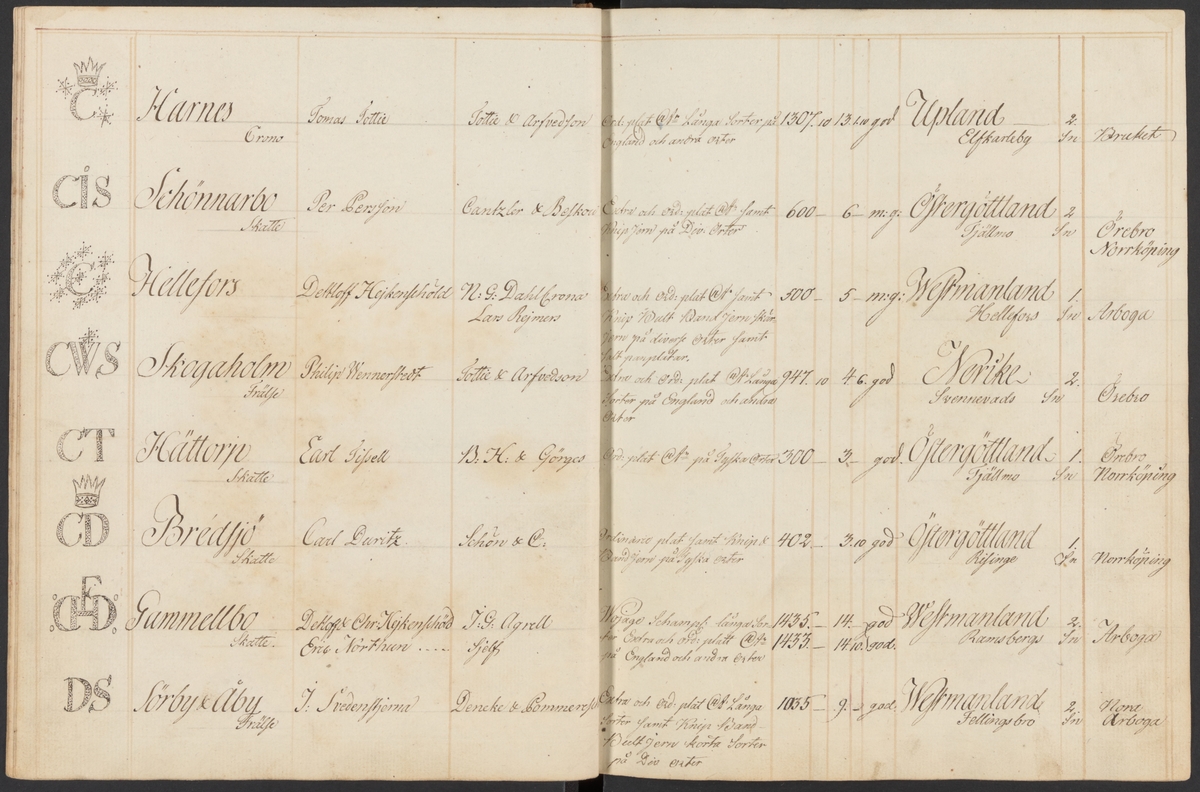 C Harnes Tomas Tottie Tottie & Arfvedson Ord: plat Långa Sorter på 1307. 10 13. 4.10 god Upland 2.
Crono England och andra orter Elfkarleby Sn Bruket
CIS Schönnarbo Per Persson Cantzler & Beskow Extra och ord: plat samt 600 – 6 – m: g: Östergöttland 2
Skatte Knip Jern på Div. Orter Tjällmo Sn Örebro
Norrköping
C Hellefors Detloff Hejkenschöld N: G: DahlCrona Extra och Ord: plat samt 500 – 5 – m: g: Westmanland 1.
Lars Rejmers Knip Bult Band Jern Skär Hellefors Sn Arboga
Jern på diverse orter samt
salt panplåtar.
CWS Skagaholm Philip Wennerstedt Tottie & Arfvedson Extra och Ord: plat Långa 947. 10 4. 6. god Nerike 2.
Frälse Sorter på England och andra Svennevads Sn Örebro
Orter
CT Hättorp Carl Tissell B. H. & Görges Ord: plat på Tyska Orter 300 – 3. – god. Östergöttland 1. Örebro
Skatte Tjällmo Sn Norrköping
CD Bredsjö Carl Duritz Schön & C: Ordinarie plat samt Knip & 402 – 3. 10 god Östergöttland 1.
Skatte Band Jern på Tyska orter Risinge Sn Norrköping
CED Gammellbo Detloff & Chr Hejkenschöld J. G. Agrell Långa Sor- 1435. – 14. – god Westmanland 2. Arboga
Skatte. Eric Northun ..... Sjelf ter Extra och ord: platt 1433. – 14. 10. god. Ramsbergs Sn
på England och andra Orter
DS Sörby & Åby J. Svedenstjerna Dencke & Pommeresche Extra och Ord: plat Långa 1035 – 9. – god. Westmanland 2. Nora
Frälse Sorter samt Knip Band Fellingsbro Sn Arboga
Bult Jern korta Sorter
på Div orter